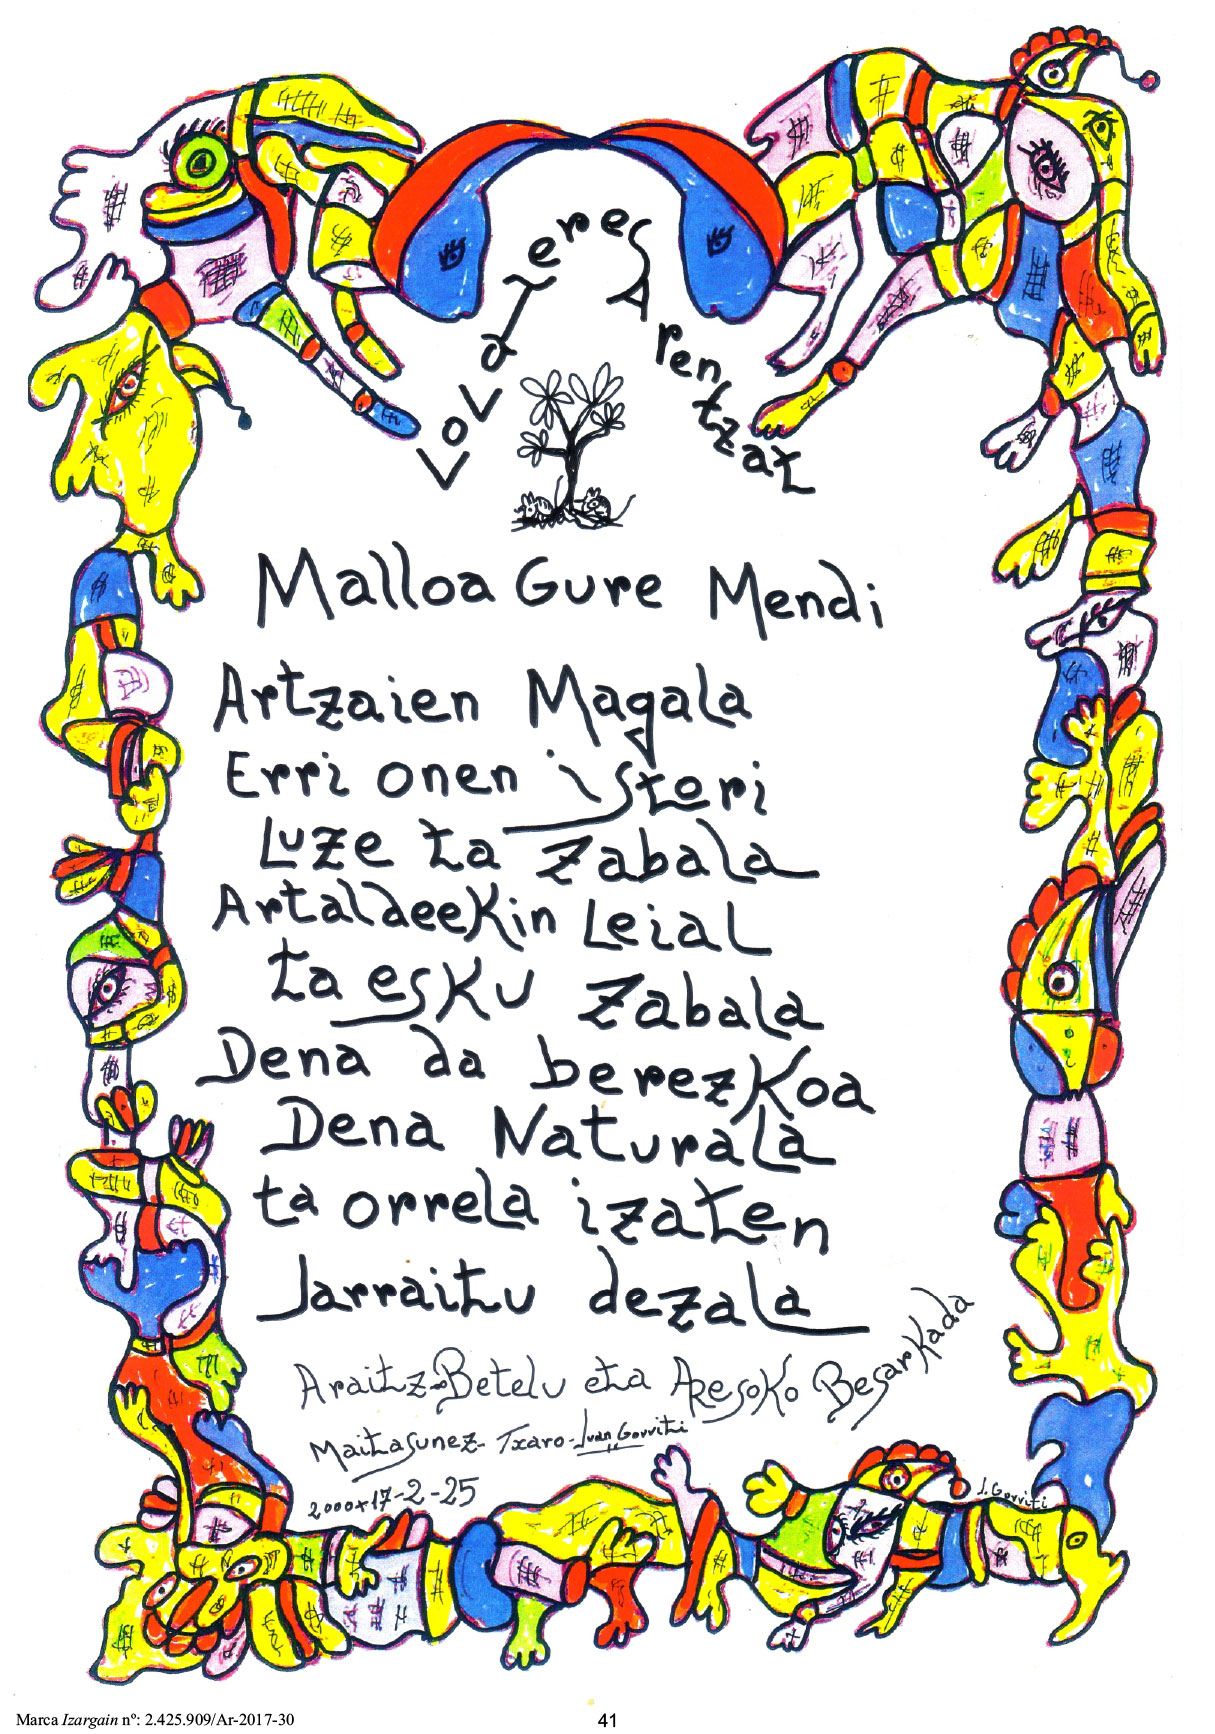 Lola Jeres Arentzat
Malloa Gure Mendi
Artzaien Magala
Erri onen istori
Luze ta Zabala
Artaldeekin Leial
ta esku Zabala
Dena da berezkoa
Dena Naturala
ta orrela izaten
Jarraitu dezala
Araitz-Betelu eta Aresoko Besarkada
Maitasunez- Txaro-Juan Gorriti
2000+17-2-25
J. Gorriti
Marca Izargain nº: 2.425.909/Ar-2017-30
41